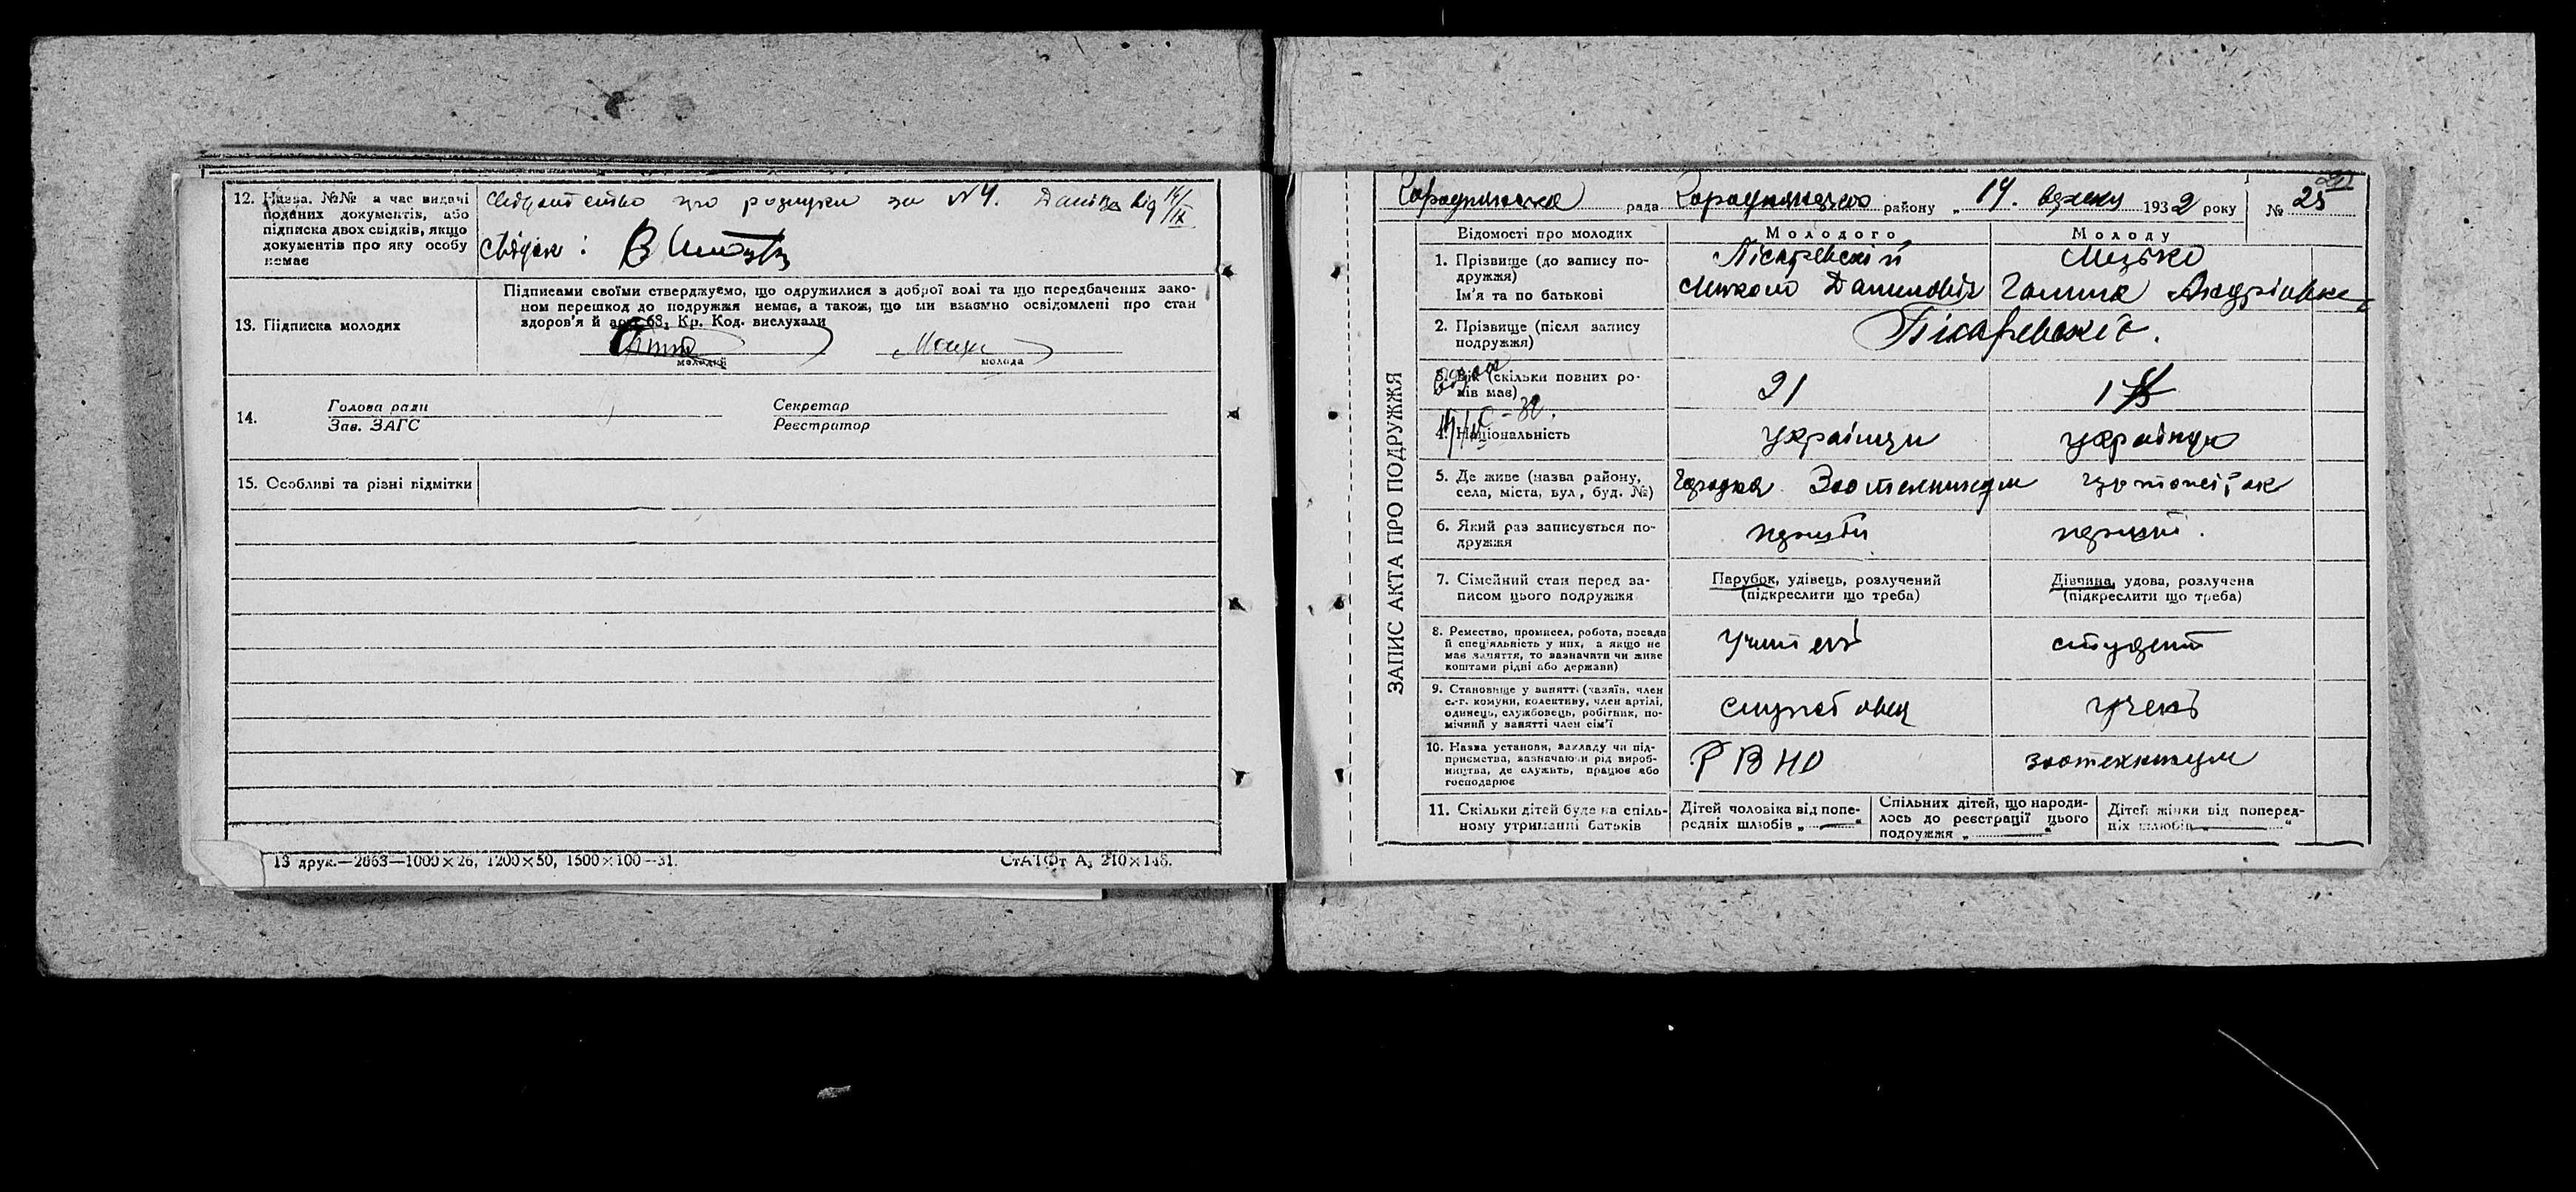 12. Назва. №№ а час видачі
поданих документів, або
підписка двох свідків, якщо
документів про яку особу
немає
про за №4. від 14/IX
Свідок: В
13. Підписка молодих
Підписами своїми стверджуємо, що одружилися з доброї волі та що передбачених зако-
ном перешкод до подружжя немає, а також, що ми взаємно освідомлені про стан
здоров'я й арт. 68, Кр. Код. вислухали
молодий
молода
14.
Голова ради
Зав. ЗАГС
Секретар
Реєстратор
15. Особливі та різні відмітки
13 друк.—2063—1000×26, 1200×50, 1500×100—31.
СтАТФт А5 210×148.
ЗАПИС АКТА ПРО ПОДРУЖЖЯ
рада району „14. 1932 року № 25
Відомості про молодих
Молодого
Молоду
1. Прізвище (до запису по-
дружжя)
Ім'я та по батькові
Пісаревский
Микола Данилович
Галина Андріївна
2. Прізвище (після запису
подружжя)
3. Вік (скільки повних ро-
ків має)
21
4. Національність
українец
українка
5. Де живе (назва району,
села, міста, вул, буд. №)
Зоотехникум
6. Який раз записується по-
дружжя
перший
перший.
7. Сімейний стан перед за-
писом цього подружжя
Парубок, удівець, розлучений
(підкреслити що треба)
Дівчина, удова, розлучена
(підкреслити що треба)
8. Ремество, промисел, робота, посада
й спеціяльність у них, а якщо не
має заняття, то зазначати чи живе
коштами рідні або держави)
учитель
студент
9. Становище у занятті (хазяїн, член
с.-г. комуни, колективу, член артілі,
одинець, службовець, робітник, по-
мічний у занятті член сім'ї
службовец
учень
10. Назва установи, закладу чи під-
приємства, зазначаючи рід вироб-
ництва, де служить, працює або
господарює
РВНО
зоотехникум
11. Скільки дітей буде на спіль-
ному утриманні батьків
Дітей чоловіка від попе-
редніх шлюбів „ — “
Спільних дітей, що народи-
лось до реєстрації цього
подружжя „ — “
Дітей жінки від поперед-
ніх шлюбів — “